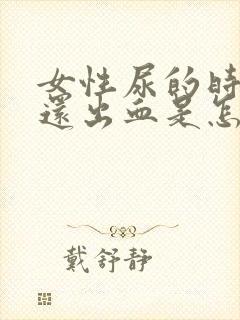 女性尿的時
還出血是怎
戴舒靜